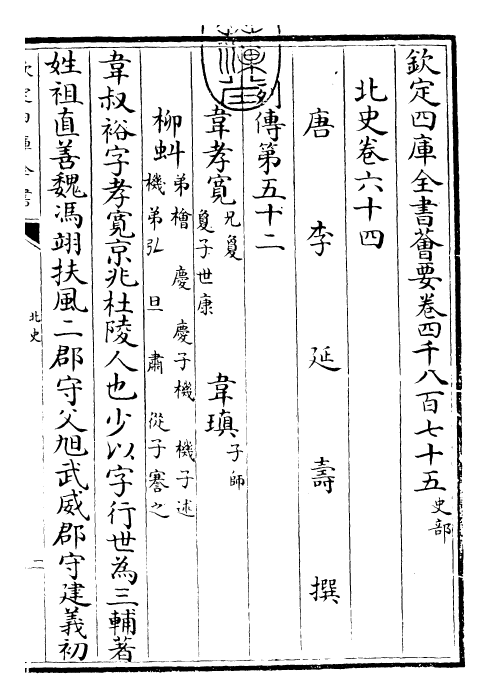 欽定四庫全書薈要卷四千八百七十五 史部
北史卷六十四
唐 李 延 壽 撰
列傳第五十二
韋孝寬 兄敻 敻子世康 韋瑱 子師
柳虯 弟檜 慶 慶子機 機子述 機弟弘 旦 肅 從子謇之
韋叔裕字孝寬京兆杜陵人也少以字行世為三輔著
姓祖直善魏馮翊扶風二郡守父旭武威郡守建義初
欽定四庫全書
北史